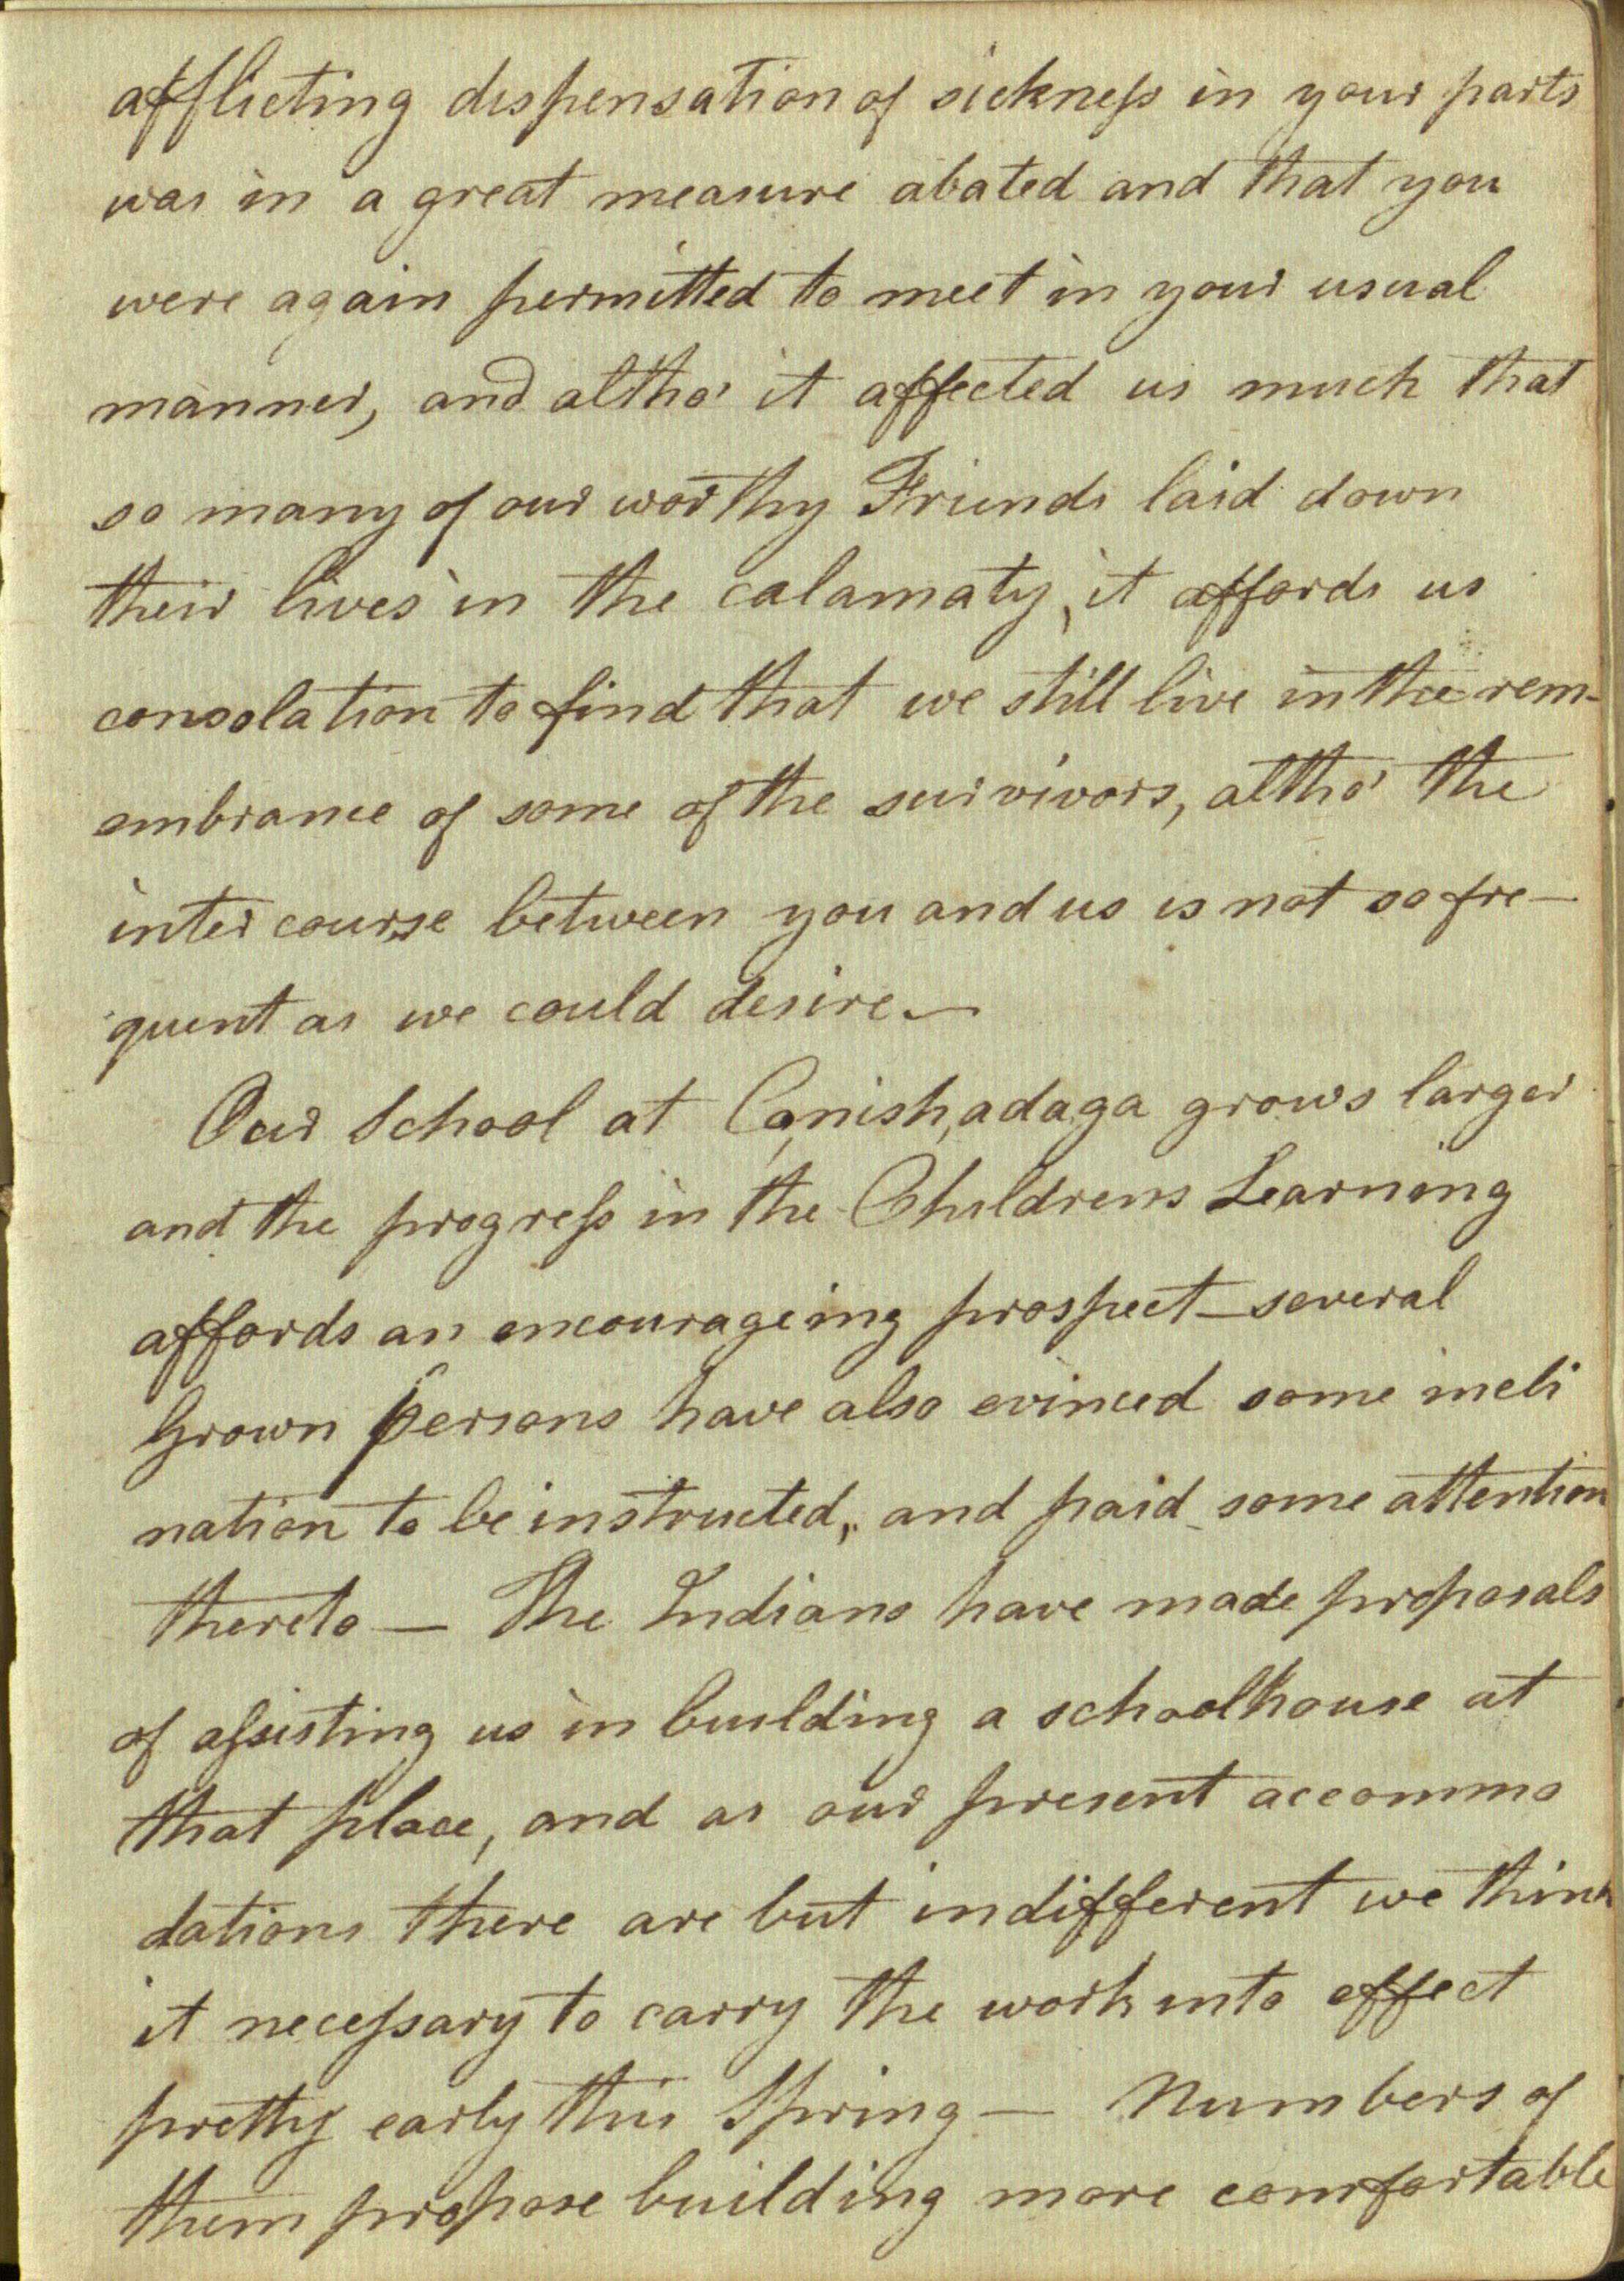 afflicting dispensation of sickness in your parts
was in a great measure abated and that you
were again permitted to meet in your usual
manner, and altho' it affected us much that
so many of our worthy Friends laid down
their lives in the calamaty, it affords us
consolation to find that we still live in the rem-
embrance of some of the survivors, altho' the
intercourse between you and us is not so fre-
quent as we could desire—
Our School at Co,nish,adaga grows larger
and the progress in the Childrens Learning
affords an encourageing prospect—several
Grown persons have also evinced some incli
nation to be instructed, and paid some attention
thereto — The Indians have made proposals
of assisting us in building a schoolhouse at
that place, and as our present accommo
dations there are but indifferent we think
it necessary to carry the work into effect
pretty early this Spring — Numbers of
them propose building more comfortable